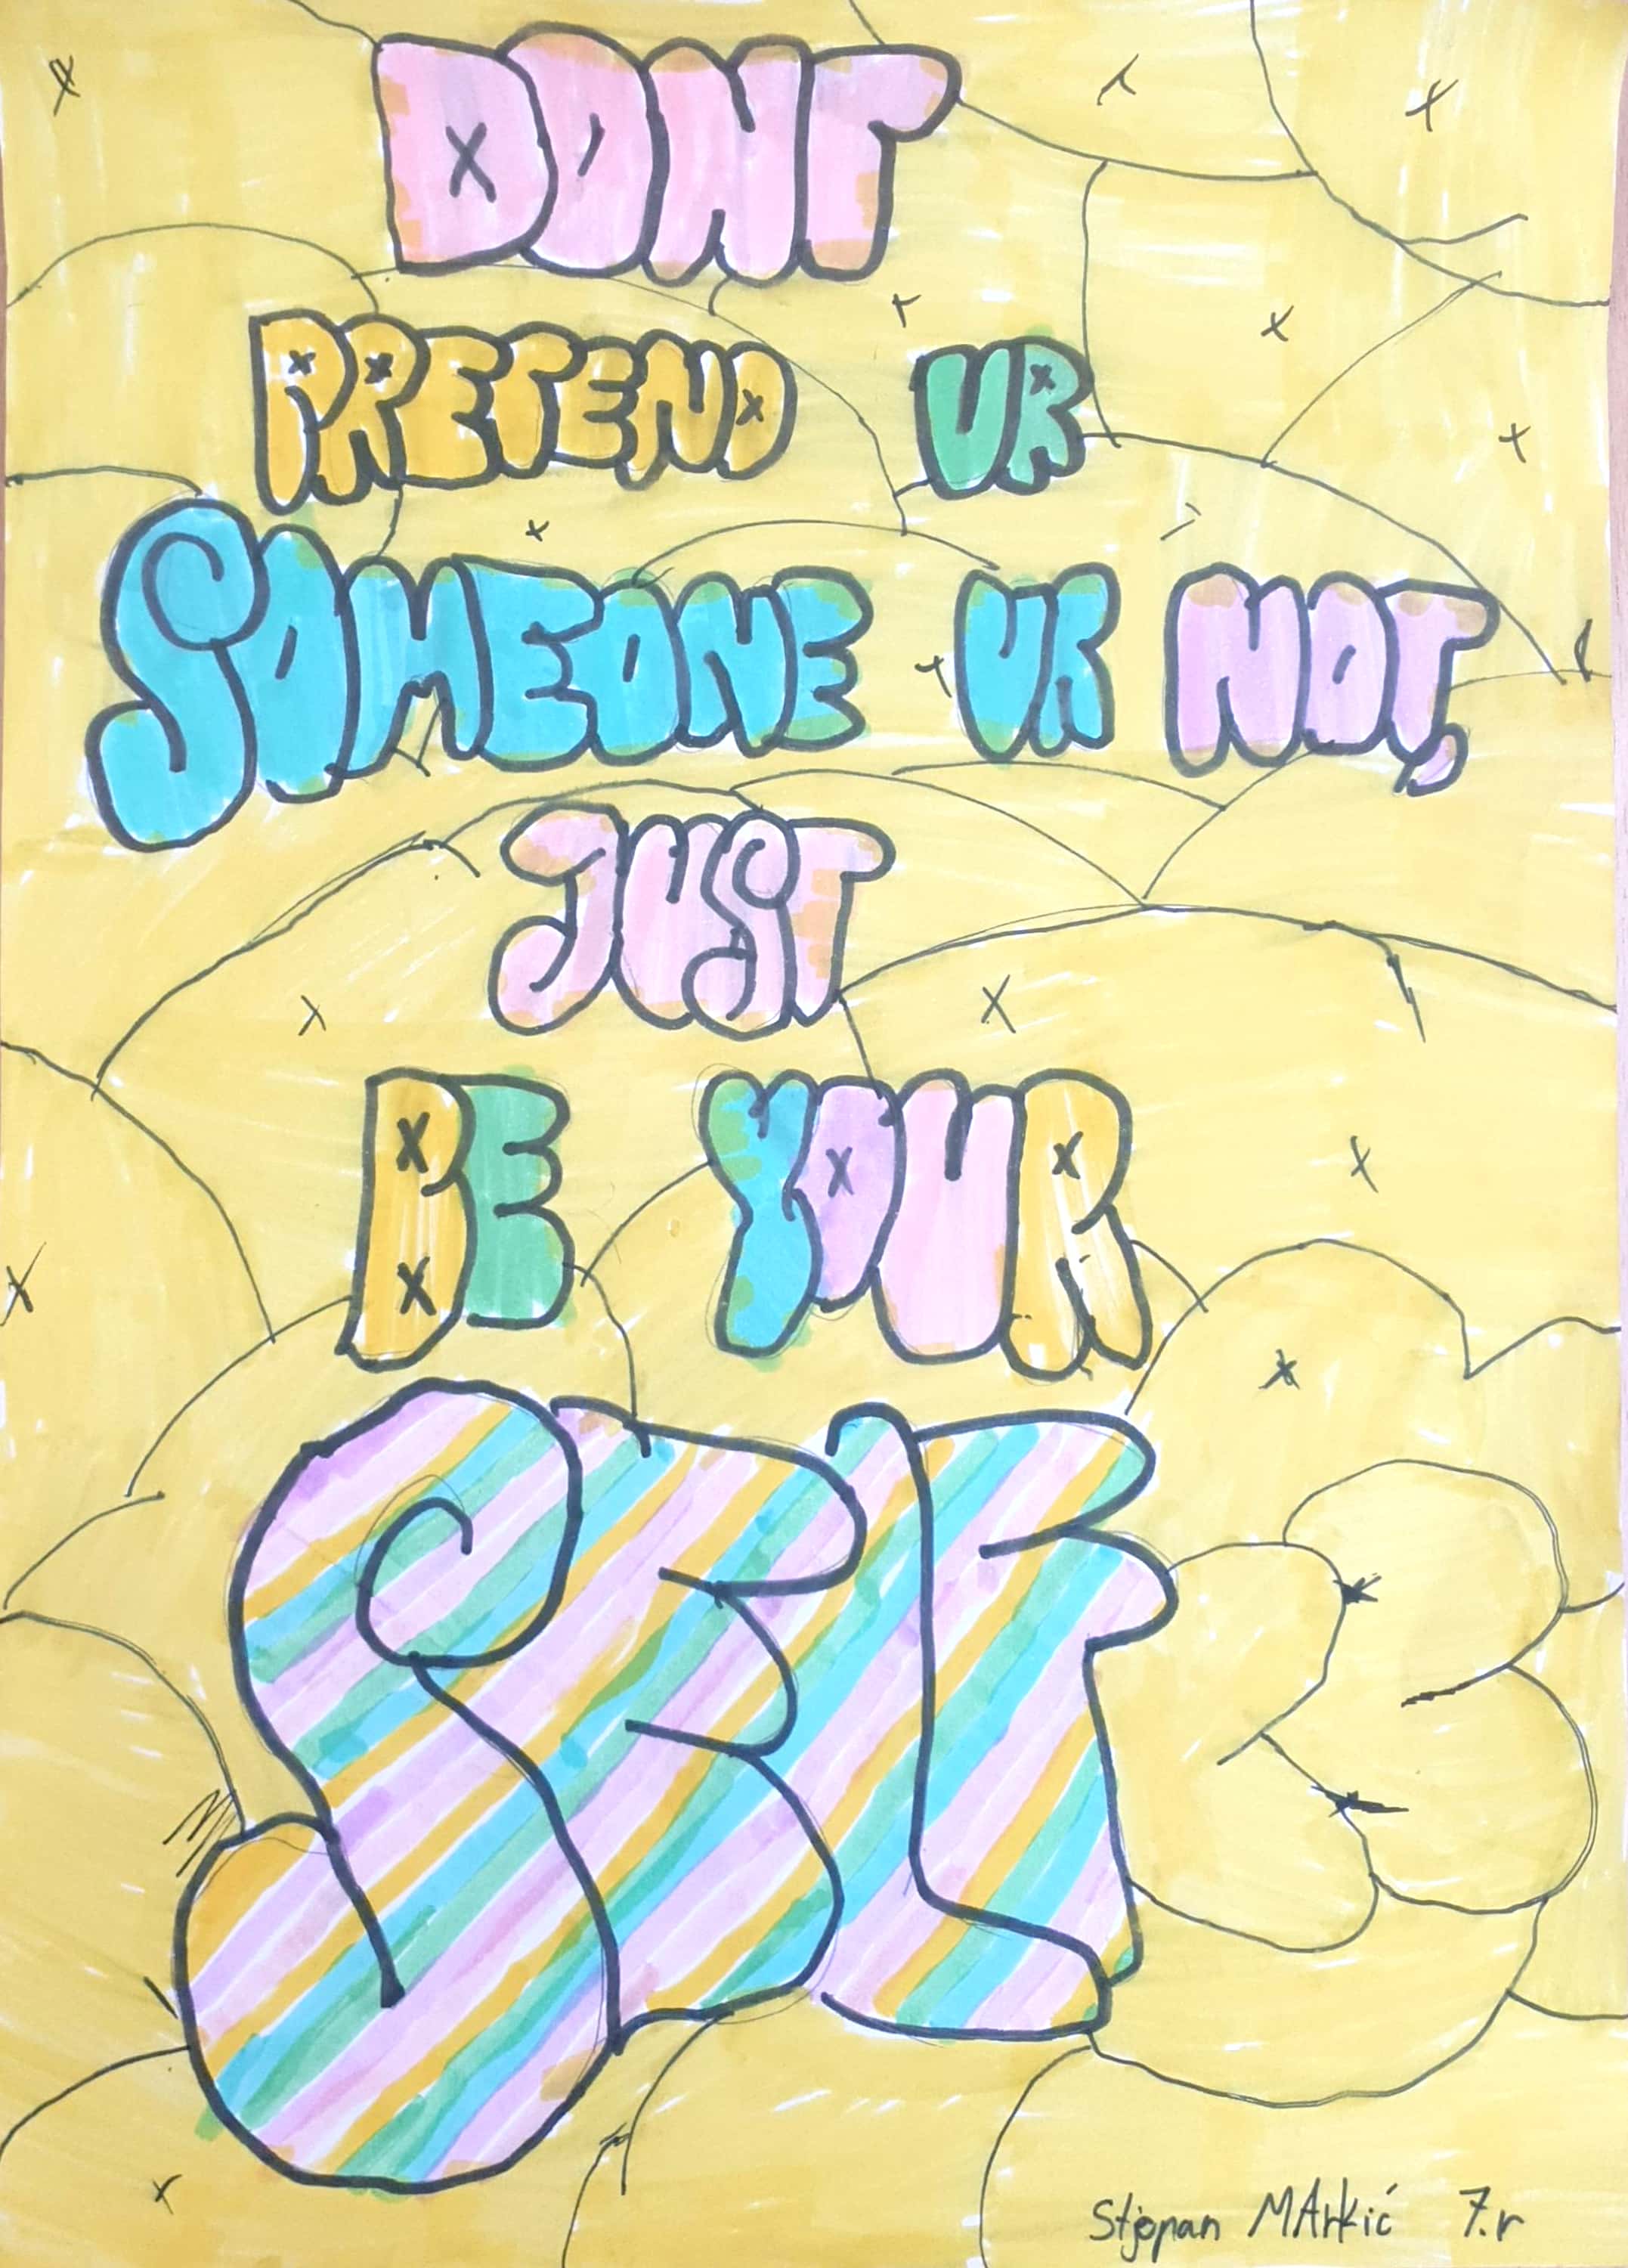 DONT
PRETEND UR
SOMEONE UR NOT,
JUST
BE YOUR
SELF
Stjepan MArkić 7.r